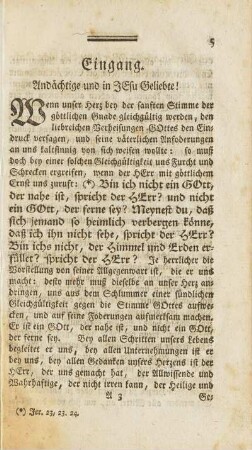 5
Eingang.
Andächtige und in JEsu Geliebte!
Wenn unser Herz bey der sanften Stimme der
göttlichen Gnade gleichgültig werden, den
liebreichen Verheisungen GOttes den Ein-
druck versagen, und seine väterlichen Anfoderungen
an uns kaltsinnig von sich weisen wollte: so muß
doch bey einer solchen Gleichgültigkeit uns Furcht und
Schrecken ergreifen, wenn der HErr mit göttlichem
Ernst uns zuruft: (*) Bin ich nicht ein GOtt,
der nahe ist, spricht der HErr? und nicht
ein GOtt, der ferne sey? Meynest du, daß
sich jemand so heimlich verbergen könne,
daß ich ihn nicht sehe, spricht der HErr?
Bin ichs nicht, der Himmel und Erden er-
füllet? spricht der HErr? Je herrlicher die
Vorstellung von seiner Allgegenwart ist, die er uns
macht: desto mehr muß dieselbe unser Herz an-
dringen, uns aus dem Schlummer einer sündlichen
Gleichgültigkeit gegen die Stimme GOttes aufwe-
cken, und auf seine Foderungen aufmerksam machen.
Es ist ein GOtt, der nahe ist, und nicht ein GOtt,
der ferne sey. Bey allen Schritten unsers Lebens
begleitet er uns, bey allen Unternehmungen ist er
bey uns, bey allen Gedanken unsers Herzens ist der
HErr, der uns gemacht hat, der Allwissende und
Wahrhaftige, der nicht irren kann, der Heilige und
A 3
Ge-
(*) Jer. 23, 23. 24.